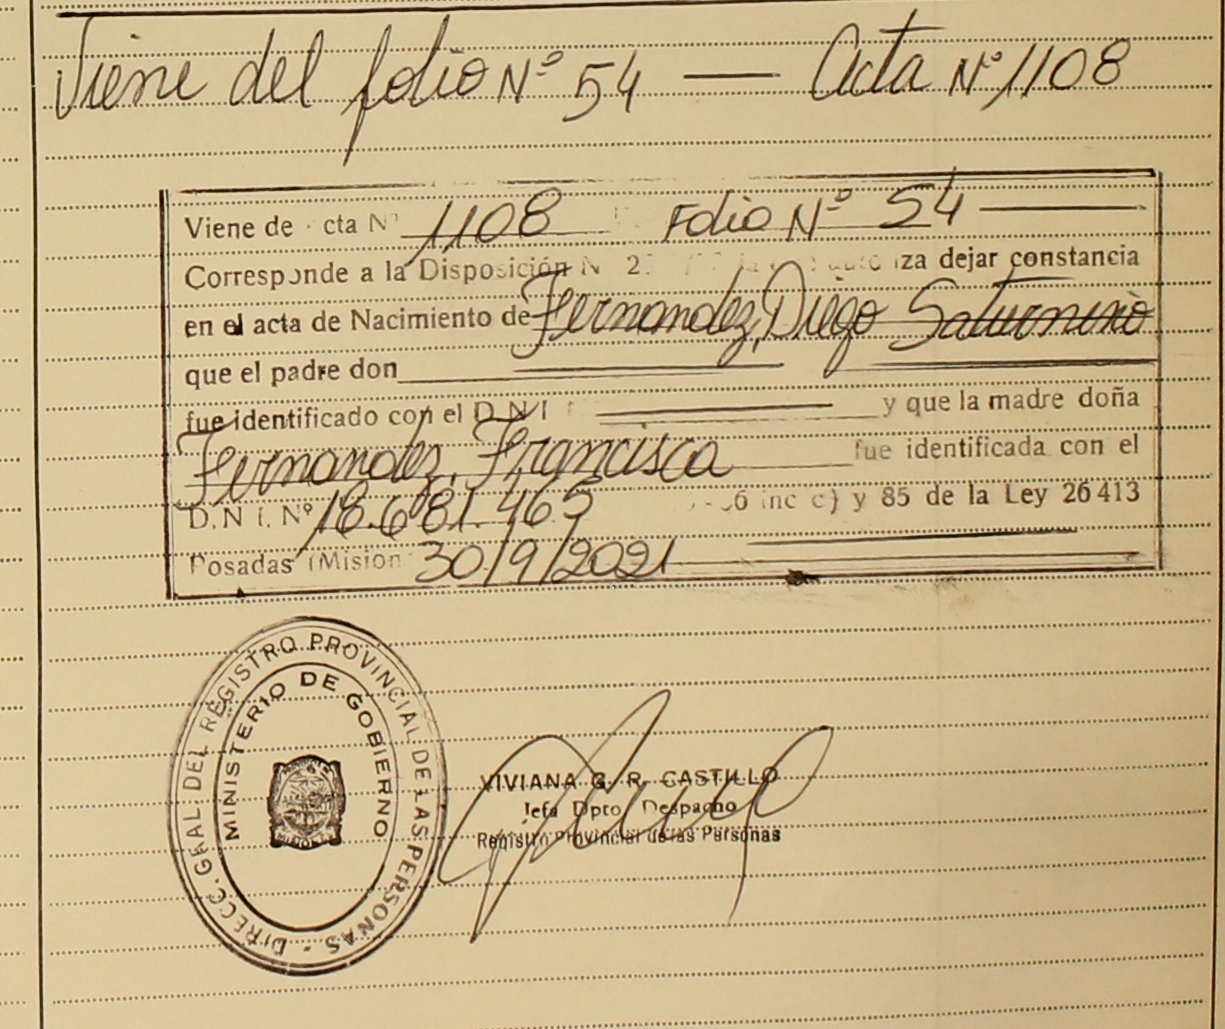 Viene del folio Nº 54 — Acta Nº 1108
Viene de cta Nº 1108 Folio Nº 54
Corresponde a la Disposición N 2 iza dejar constancia
en el acta de Nacimiento de Fernandez, Diego Saturnino
que el padre don
fue identificado con el D N I y que la madre doña
Fernandez, Francisca fue identificada con el
D.N.I. Nº 18.681.465 inc c) y 85 de la Ley 26 413
Posadas (Mision 30/9/2021
DIRECC. GRAL DEL REGISTRO PROVINCIAL DE LAS PERSONAS
MINISTERIO DE GOBIERNO
VIVIANA G. R. CASTILLO
Jefa Dpto Despacho
Registro Provincial de las Personas